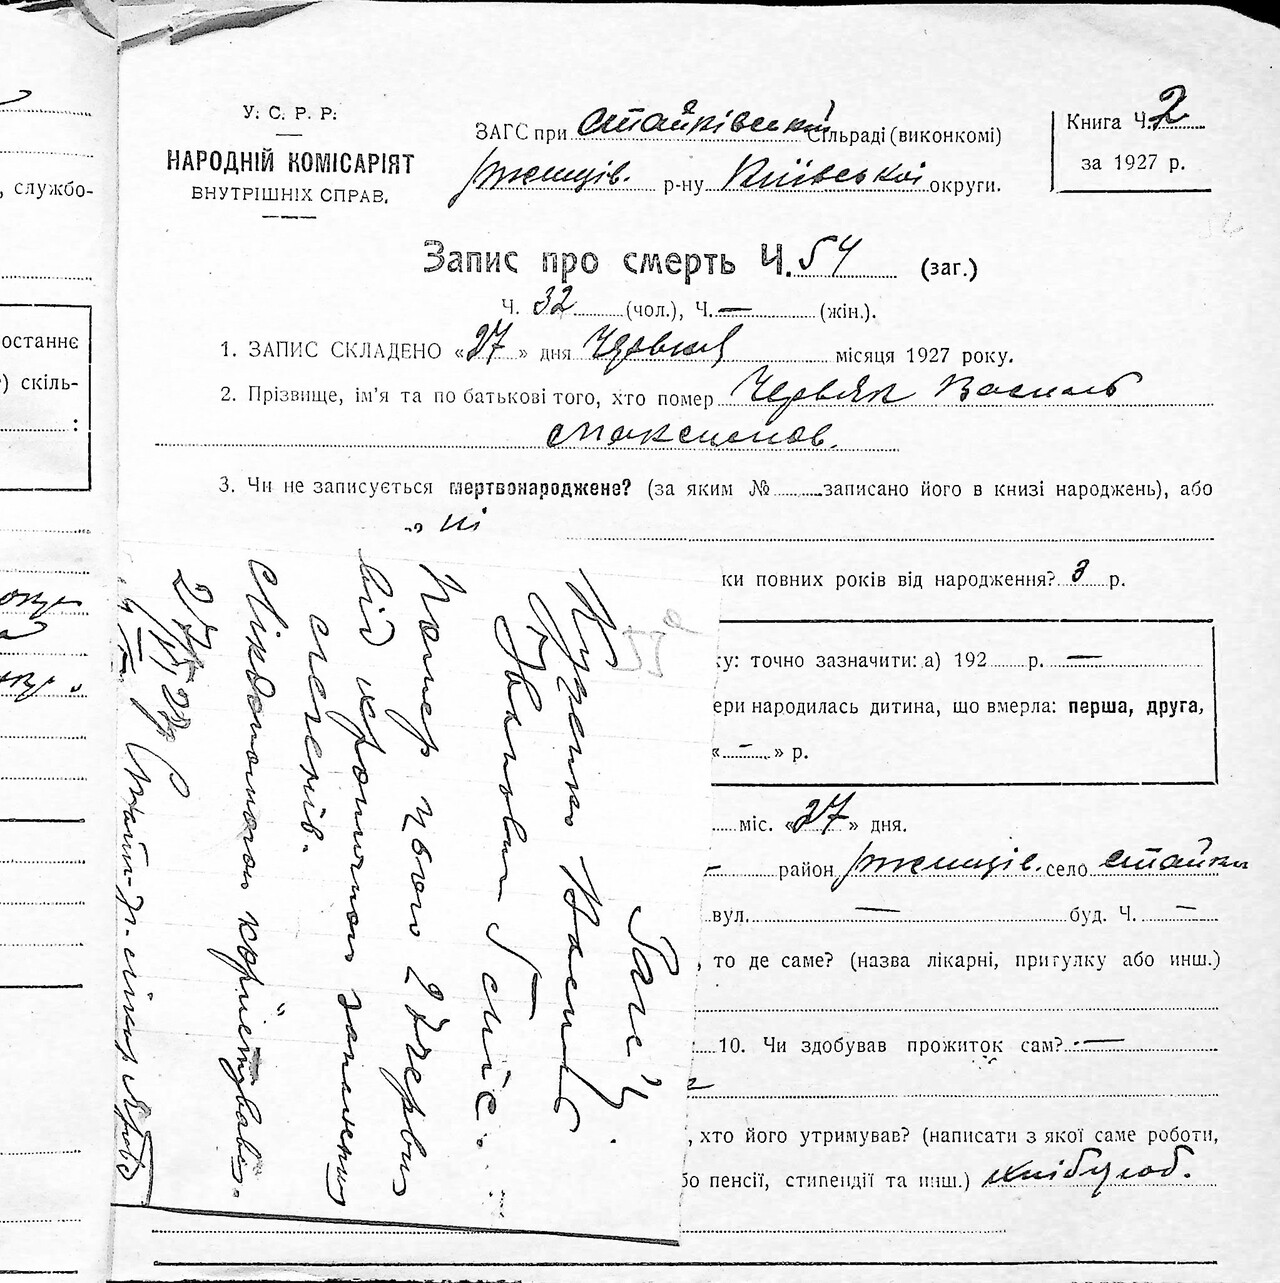 У. С. Р. Р.
НАРОДНІЙ КОМІСАРІЯТ
ВНУТРІШНІХ СПРАВ.
ЗАГС при Стайківській сільраді (виконкомі)
Ржищів. р-ну Київської округи.
Книга Ч. 2
за 1927 р.
Запис про смерть Ч. 54 (заг.)
Ч. 32 (чол.), Ч. — (жін.).
1. ЗАПИС СКЛАДЕНО «27» дня Червня місяця 1927 року.
2. Прізвище, ім'я та по батькові того, хто помер Червяк Василь
Максимов.
3. Чи не записується мертвонароджене? (за яким № записано його в книзі народжень), або
ні
ки повних років від народження? 3 р.
ку: точно зазначити: а) 192 р. —
ери народилась дитина, що вмерла: перша, друга,
« — » р.
міс. «27» дня.
район Ржищів. село Стайки
вул. — буд. Ч. —
, то де саме? (назва лікарні, притулку або инш.)
10. Чи здобував прожиток сам? —
, хто його утримував? (написати з якої саме роботи,
бо пенсії, стипендії та инш.) хлібороб.
, службо-
останнє
) скіль-
:
Загс'у.
Кузенко Василь
Помер цього 27 червня
від хронічного запалення
легенів.
Лікдопомогою користувавсь.
27/VI 27 р.